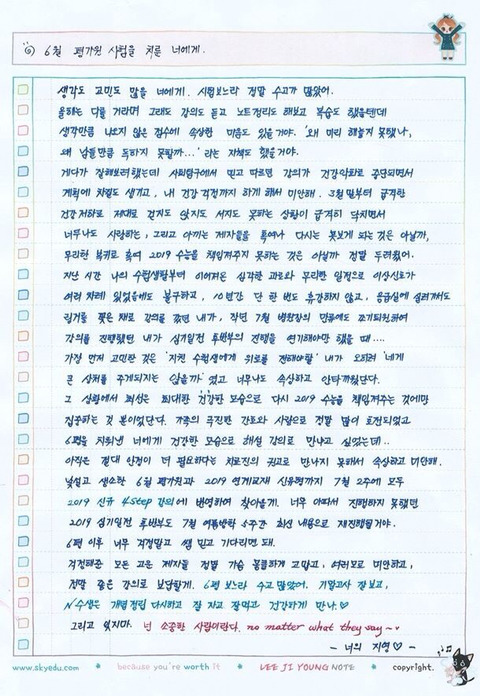 6월 평가원 시험을 치룬 너에게.
생각도 고민도 많을 너에게. 시험보느라 정말 수고가 많았어.
올해는 다를 거라며 그래도 강의도 듣고 노트정리도 해보고 복습도 했을텐데
생각만큼 나오지 않은 점수에 속상한 마음도 있을거야. '왜 미리 해놓지 못했나,
왜 남들만큼 독하지 못할까...' 라는 자책도 했을거야.
게다가 잘해보려했는데 사회탐구에서 믿고 따르던 강의가 건강악화로 중단되면서
계획에 차질도 생기고, 내 건강 걱정까지 하게 해서 미안해. 3월말부터 급격한
건강저하로 제대로 걷지도 앉지도 서지도 못하는 상황이 급격히 닥치면서
너무나도 사랑하는, 그리고 아끼는 제자들을 혹여나 다시는 못보게 되는 것은 아닐까,
무리한 복귀로 혹여 2019 수능을 책임져주지 못하는 것은 아닐까 정말 두려웠어.
지난 시간 나의 수험생활부터 이어져온 심각한 과로와 무리한 일정으로 이상신호가
여러 차례 있었음에도 불구하고, 10년간 단 한 번도 휴강하지 않고, 응급실에 실려가서도
링거를 꽂은 채로 강의를 갔던 내가, 작년 7월 병원장의 만류에도 조기퇴원하여
강의를 진행했던 내가 실기일전 후반부의 진행을 연기해야만 했을 때....
가장 먼저 고민한 것은 '지친 수험생에게 위로를 전해야할' 내가 오히려 '네게
큰 상처를 주게되지는 않을까' 였고 너무나도 속상하고 안타까웠단다.
그 상황에서 최선은 최대한 '건강한' 모습으로 다시 2019 수능을 책임져주는 것에만
집중하는 것 뿐이었단다. 가족의 극진한 간호와 사랑으로 정말 많이 호전되었고
6평을 치뤄낸 너에게 건강한 모습으로 해설 강의로 만나고 싶었는데..
아직은 절대 안정이 더 필요하다는 의료진의 권고로 만나지 못해서 속상하고 미안해.
낯설고 생소한 6월 평가원과 2019 연계교재 신유형까지 7월 2주에 모두
2019 신규 4step 강의에 반영하여 찾아올게. 너무 아파서 진행하지 못했던
2019 심기일전 후반부도 7월 여름방학 5주간 최신 내용으로 재진행될거야.
6평 이후 너무 걱정말고 쌤 믿고 기다리면 돼.
걱정해준 모든 고운 제자들 정말 가슴 뭉클하게 고맙고, 여러모로 미안하고,
정말 좋은 강의로 보답할게. 6평 보느라 수고 많았어. 기말고사 잘 보고,
N수생은 개념정립 다시하고 잘 자고 잘먹고 건강하게 만나.♡
그리고 잊지마. 넌 소중한 사람이란다. no matter what they say~
- 너의 지영♡ -
www.skyedu.com * because you're worth it * LEE JI YOUNG NOTE * copyright.